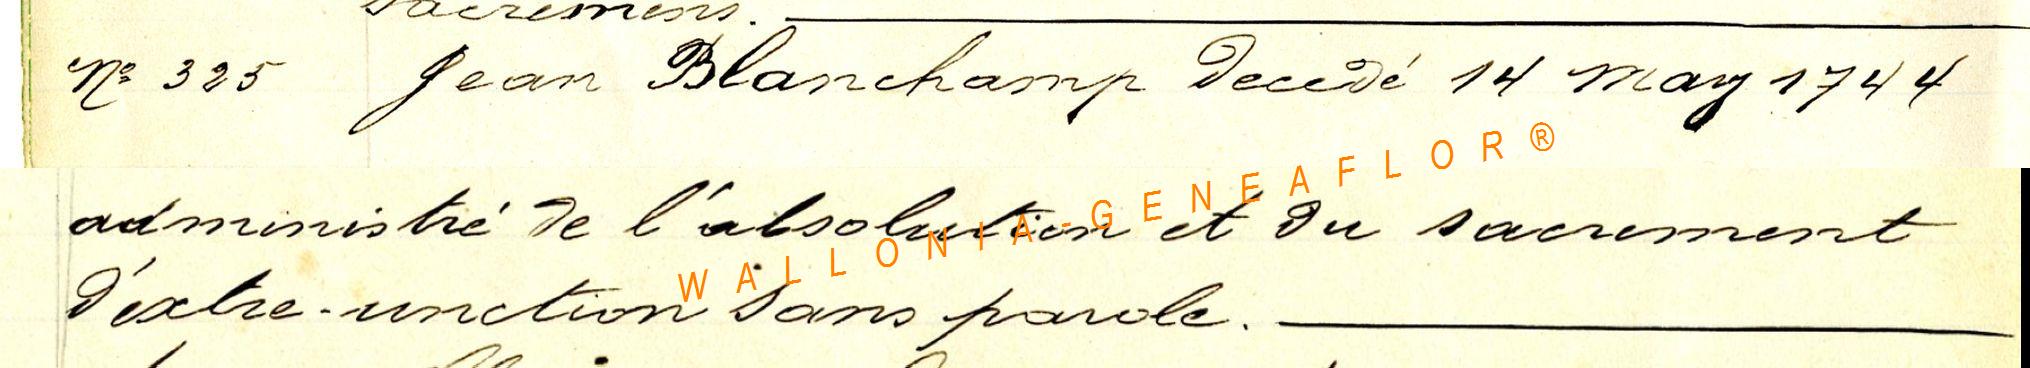 sacremens.
Nº 325 Jean Blanchamp decedé 14 May 1744
administré de l'absolution et du sacrement
d'extre-unction sans parole.
WALLONIA-GENEAFLOR®